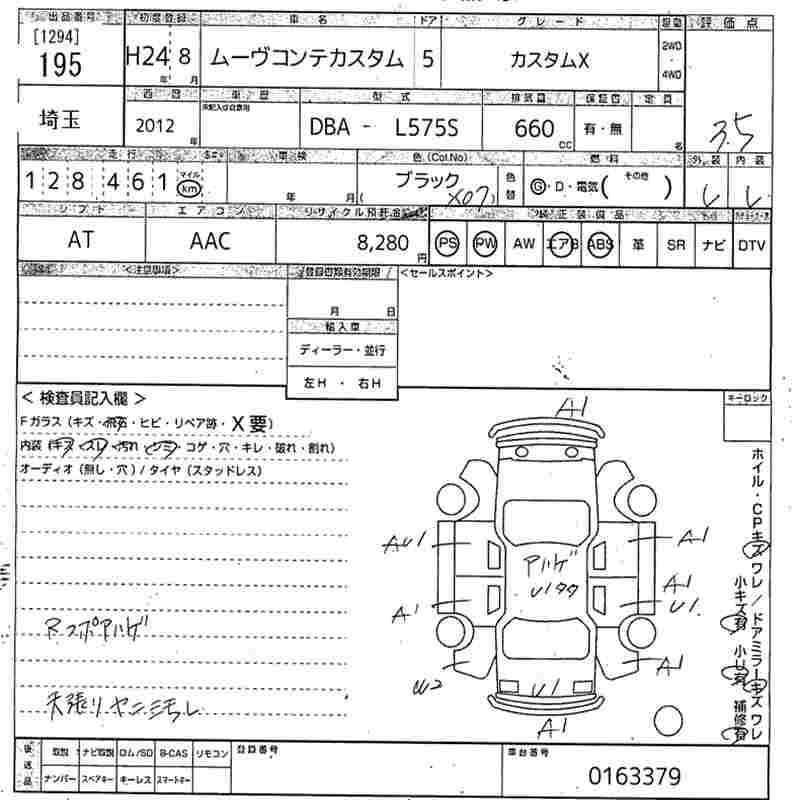 出品番号 初度登録 車名 ドア グレード 駆動 評価点
[1294]
195 H24年 8月 ムーヴコンテカスタム 5 カスタムX 2WD・4WD 3.5
西暦 車歴 型式 排気量 保証書 定員
埼玉 2012年 DBA - L575S 660cc 有・無 名
走行 車検 色(Col.No) 燃料 外装 内装
128461 マイル km 年 月 ブラック (X07) 色替 G・D・電気( その他 ) L L
シフト エアコン リサイクル預託金 純正装備品
AT AAC 8,280円 PS PW AW エアB ABS 革 SR ナビ DTV
<注意事項> 登録書類有効期限 <セールスポイント>
月 日
輸入車
ディーラー・並行
左H ・ 右H
< 検査員記入欄 > キーロック
Fガラス (キズ・飛石・ヒビ・リペア跡・X要)
内装 (キズ・スレ・汚れ・シミ・コゲ・穴・キレ・破れ・割れ)
オーディオ (無し・穴) / タイヤ (スタッドレス)
A1
AU1 A1
アハゲ
U1タタ
A1 A1
U1
Rスポアハゲ
W2 A1
U1
天張りヤニシミヨゴレ
A1
ホイル・CPキズワレ/ドアミラーキズワレ
小キズ有 小U有 補修有
後送品 取説 ナビ取説 ロム/SD B-CAS リモコン 登録番号 車台番号
ナンバー スペアキー キーレス スマートキー
0163379